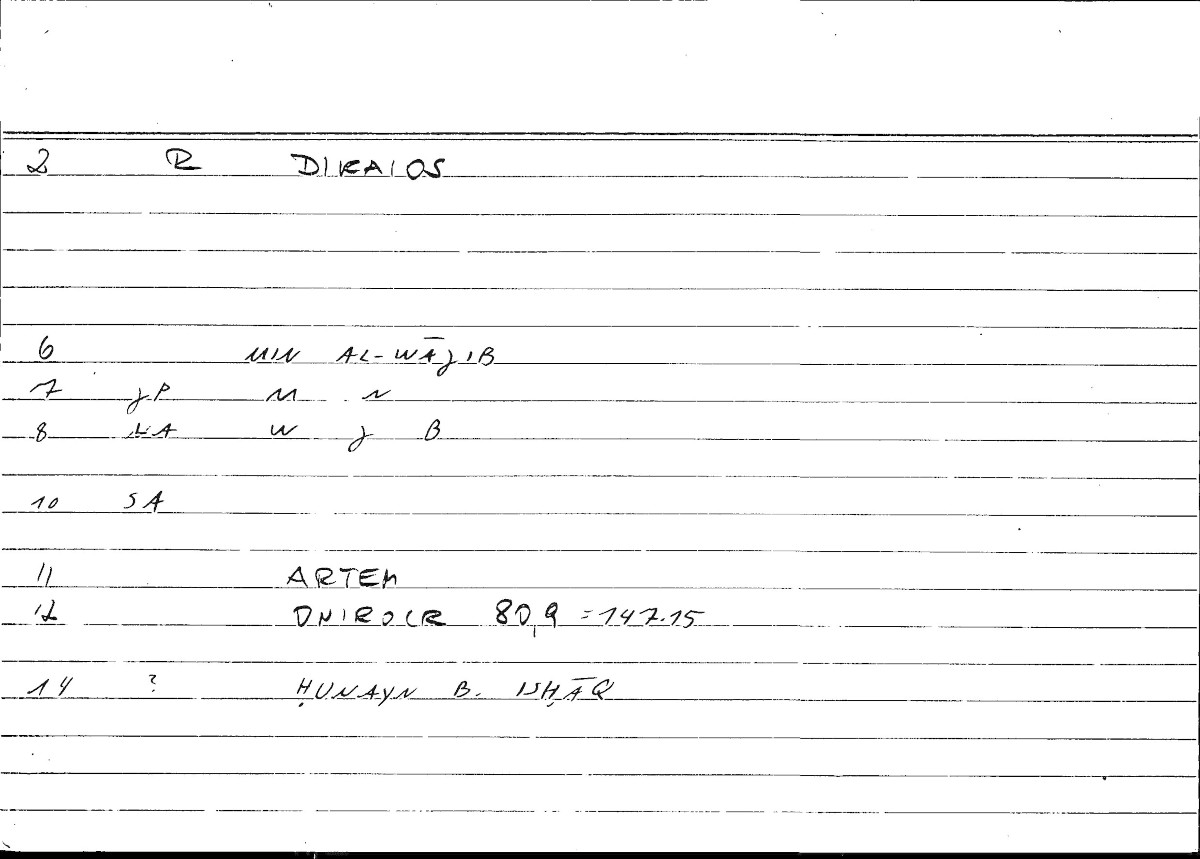 2 R DIKAIOS
6 MIN AL-WĀJIB
7 JP M N
8 LA W J B
10 SA
11 ARTEM
12 ONIROCR 80,9 =147.15
14 ? ḤUNAYN B. ISḤĀQ